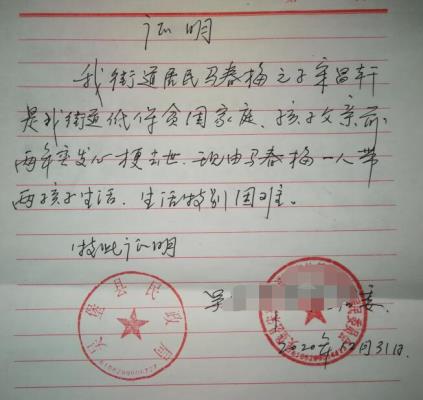 证明
我街道居民马春梅之子宋昌轩
是我街道低保贫困家庭、孩子父亲前
两年突发心梗去世、现由马春梅一人带
两孩子生活、生活特别困难。
特此证明
县民政局
委
2020年12月31日